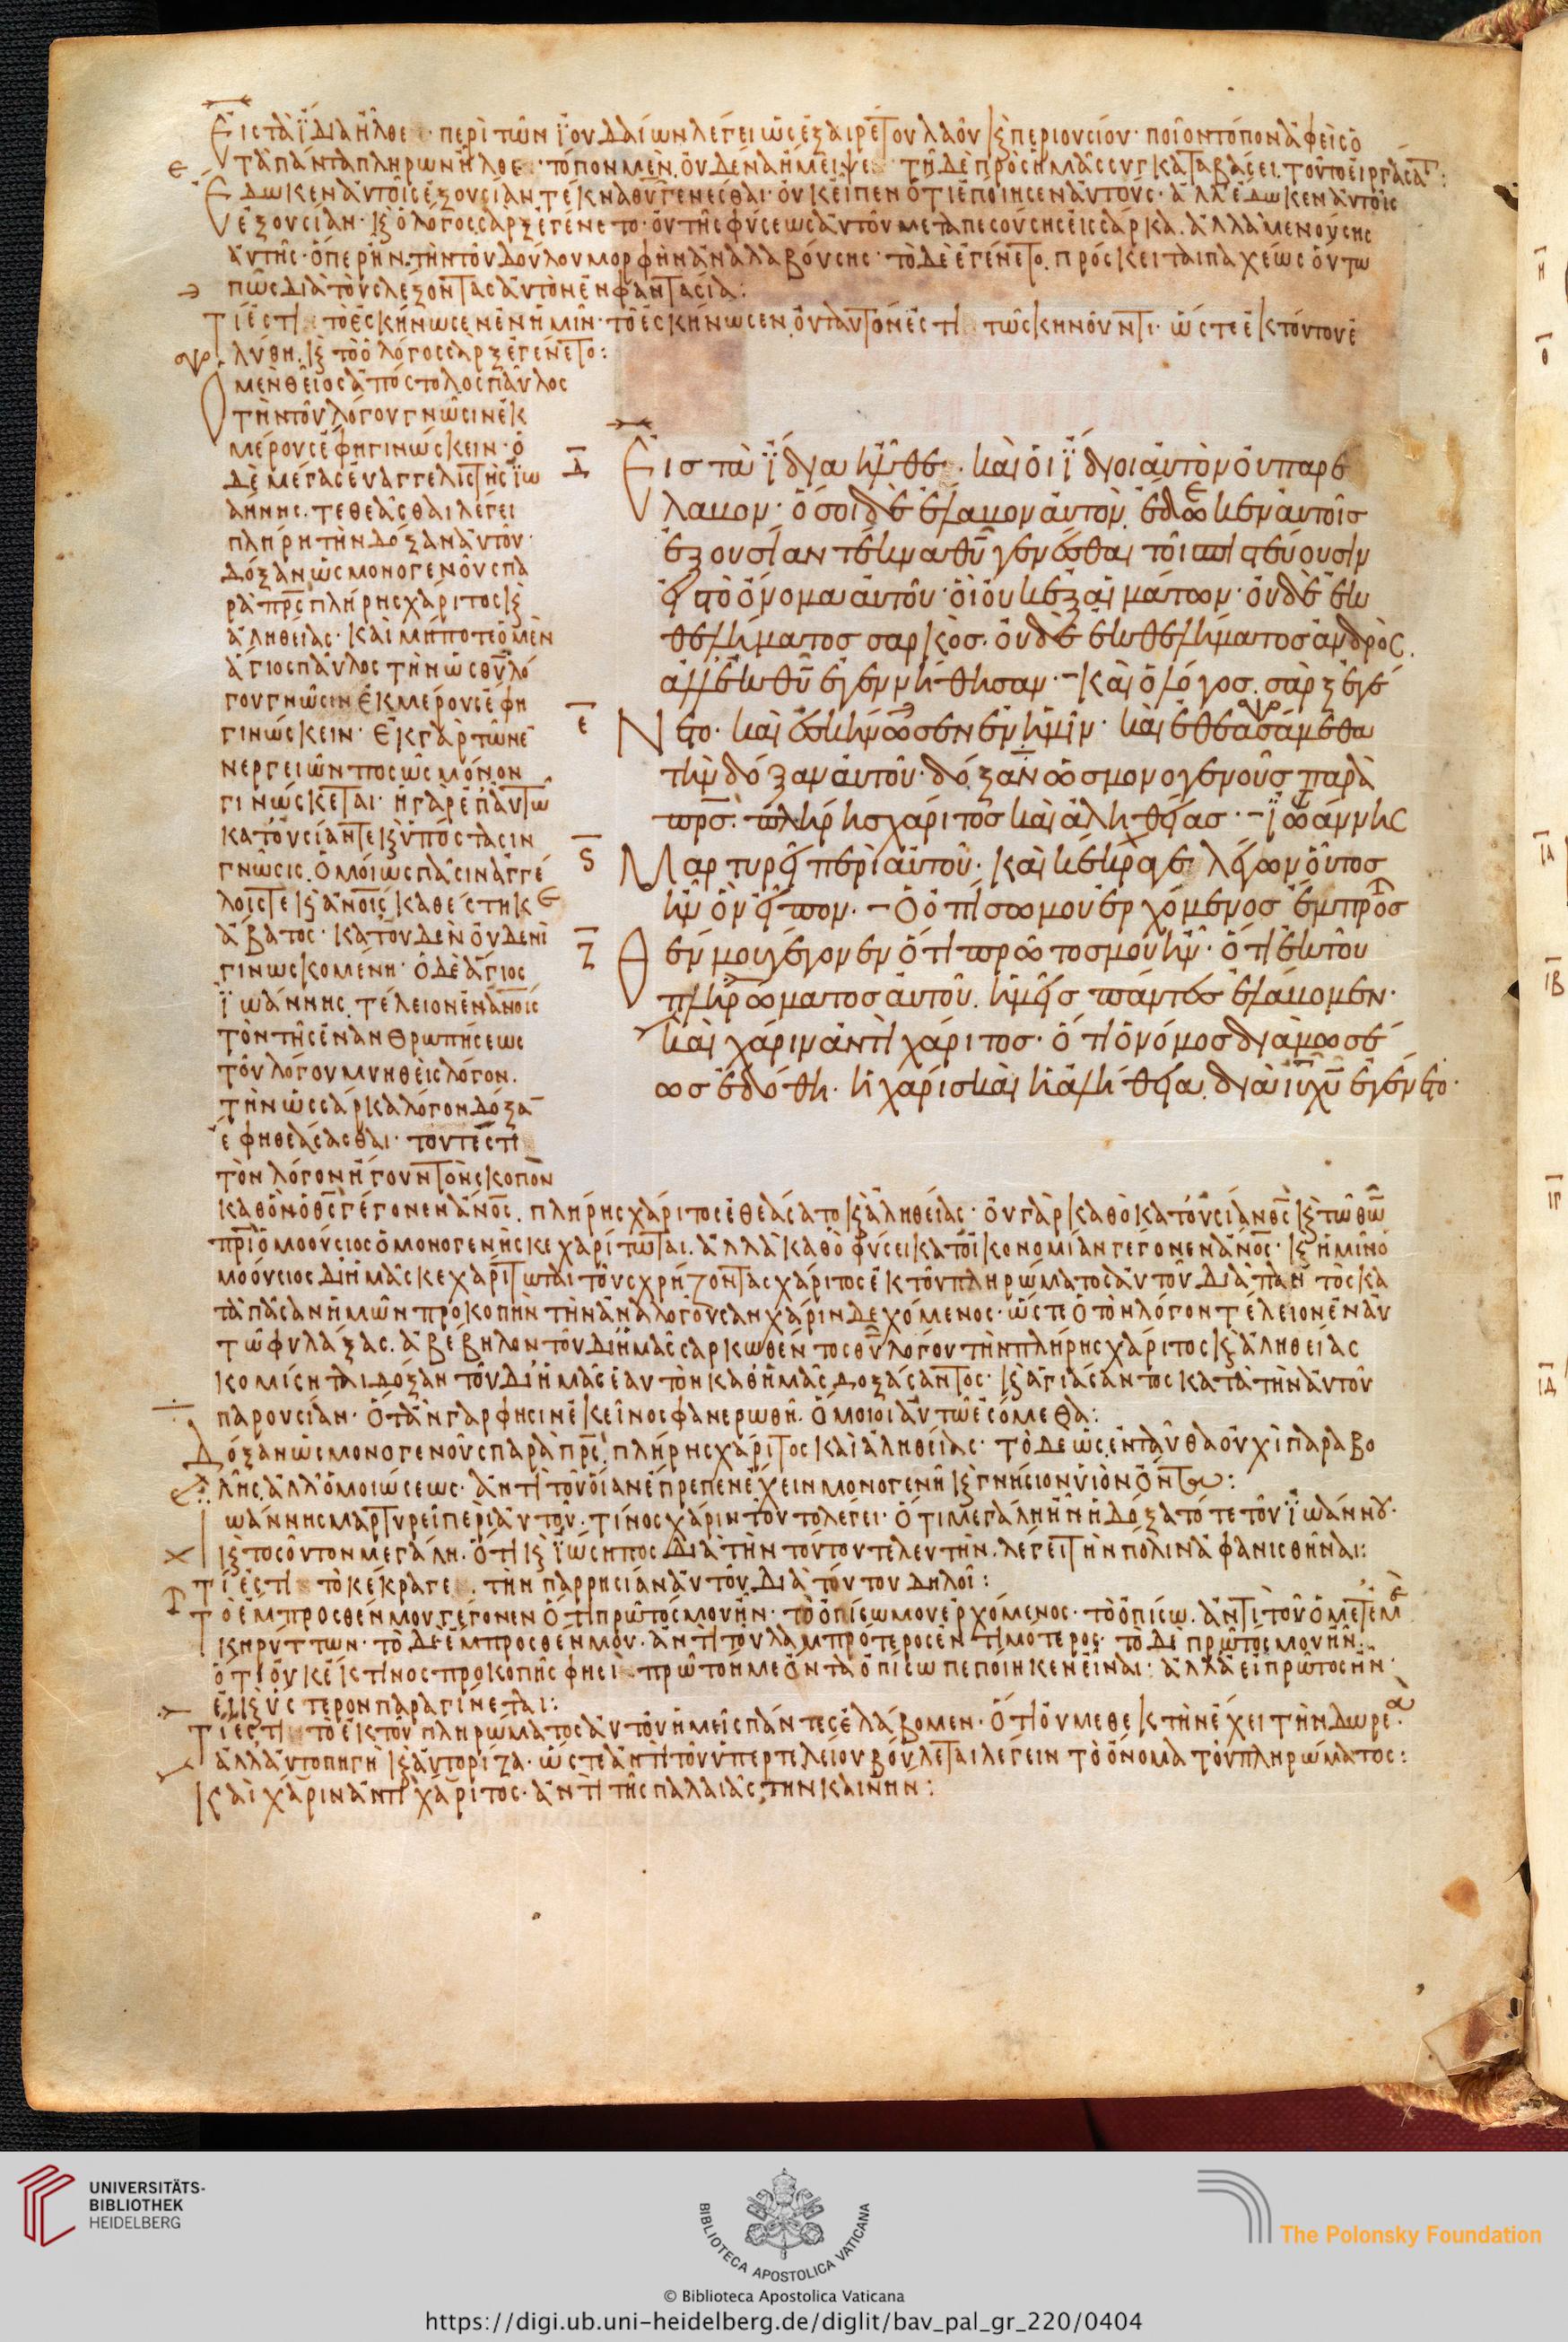 Εἰς τὰ ἴδια ἦλθε · περὶ τῶν ἰουδαίων λέγει ὡς ἐξαίρετον λαὸν κ περιούσιον · ποῖον τόπον ἀφεὶς ὁ
τὰ πάντα πληρῶν ἦλθε · τόπον μὲν οὐδένα ἤμειψε · τῇ δὲ πρὸς ἡμᾶς συγκαταβάσει τοῦτο εἰργάσατο :
Ἔδωκεν αὐτοῖς ἐξουσίαν τέκνα θυ γενέσθαι · οὐκ εἶπεν ὅτι ἐποίησεν αὐτοὺς · ἀλλ ἔδωκεν αὐτοῖς
ἐξουσίαν · κ ὁ λόγος σὰρξ ἐγένετο · οὐ τῆς φύσεως αὐτοῦ μεταπεσούσης εἰς σάρκα · ἀλλὰ μενούσης
αὐτῆς · ὅπερ ἦν τὴν τοῦ δούλου μορφὴν ἀναλαβούσης · τὸ δὲ ἐγένετο πρόσκειται παχέως οὕτω
πῶς διὰ τοὺς λέξοντας αὐτὸν ἐν φαντασία :
Τί ἐστι τὸ ἐσκήνωσεν ἐν ἡμῖν · τὸ ἐσκήνωσεν οὐ ταυτόν ἐστι τῶ σκηνοῦντι · ὥστε ἐκ τούτου ἐ
λύθη κ τὸ ὁ λόγος σὰρξ ἐγένετο :
Ὁ μὲν θεῖος ἀπόστολος παῦλος
τὴν τοῦ λόγου γνῶσιν ἐκ
μέρους ἔφη γινώσκειν · ὁ
δὲ μέγας εὐαγγελιστὴς ἰω
άννης τεθεᾶσθαι λέγει
πλήρη τὴν δόξαν αὐτοῦ ·
δόξαν ὡς μονογενοῦς πα
ρὰ πρς πλήρης χάριτος κ
ἀληθείας · καὶ μήποτε ὁ μὲν
ἅγιος παῦλος τὴν ὡς θυ λό
γου γνῶσιν ἐκ μέρους ἔφη
γινώσκειν · ἐκ γὰρ τῶν ἐ
νεργειῶν ποσῶς μόνον
γινώσκεται · ἡ γὰρ ἐπ αὐτῶ
κατ οὐσίαν τε κ ὑπόστασιν
γνῶσις ὁμοίως πᾶσιν ἀγγέ
λοις τε κ ἀνοις καθέστηκε
ἄβατος · κατ οὐδὲν οὐδενὶ
γινωσκομένη · ὁ δὲ ἅγιος
ἰωάννης τέλειον ἐν ἀνοις
τὸν τῆς ἐνανθρωπήσεως
τοῦ λόγου μυηθεὶς λόγον ·
τὴν ὡς σάρκα λόγου δόξα
ἔφη θεάσασθαι · τουτέστι
τὸν λόγον ἤγουν τὸν σκοπὸν
Εἰς τὰ ἴδια ἦλθε · καὶ οἱ ἴδιοι αὐτὸν οὐ παρέ
λαβον · ὅσοι δὲ ἔλαβον αὐτὸν ἔδωκεν αὐτοῖς
ἐξουσίαν τέκνα θυ γενέσθαι τοῖς πιστεύουσιν
εἰς τὸ ὄνομα αὐτοῦ · οἳ οὐκ ἐξ αἱμάτων · οὐδὲ ἐκ
θελήματος σαρκὸς · οὐδὲ ἐκ θελήματος ἀνδρὸς
ἀλλ ἐκ θυ ἐγεννήθησαν · Καὶ ὁ λόγος σὰρξ ἐγέ
Νετο · καὶ ἐσκήνωσεν ἐν ἡμῖν · καὶ ἐθεασάμεθα
τὴν δόξαν αὐτοῦ · δόξαν ὡς μονογενοῦς παρὰ
πρς · πλήρης χάριτος καὶ ἀληθείας · ἰωάννης
Μαρτυρεῖ περὶ αὐτοῦ · καὶ κέκραγε λέγων οὗτος
ἦν ὃν εἶπον · Ὁ ὀπίσω μου ἐρχόμενος ἔμπροσ
θεν μου γέγονεν ὅτι πρῶτός μου ἦν · ὅτι ἐκ τοῦ
πληρώματος αὐτοῦ ἡμεῖς πάντες ἐλάβομεν ·
καὶ χάριν ἀντὶ χάριτος · ὅτι ὁ νόμος διὰ μωσέ
ως ἐδόθη · ἡ χάρις καὶ ἡ ἀλήθεια διὰ ιυ χυ ἐγένετο ·
καθ ὃν ὁ θς γέγονεν ἄνος πλήρης χάριτος ἐθεάσατο κ ἀληθείας · οὐ γὰρ καθὸ κατ οὐσίαν θς κ τῶ θω
πρι ὁμοούσιος ὁ μονογενὴς κεχαρίτωται ἀλλὰ καθὸ φύσει κατ οἰκονομίαν γέγονεν ἄνος · κ ἡμῖν ὁ
μοούσιος δι ἡμᾶς κεχαρίτωται τοὺς χρήζοντας χάριτος ἐκ τοῦ πληρώματος αὐτοῦ διὰ παντὸς κα
τὰ πᾶσαν ἡμῶν προκοπὴν τὴν ἀναλογοῦσαν χάριν δεχόμενος · ὥστε ὁ τὸν λόγον τέλειον ἐν αὐ
τῶ φυλάξας ἀβέβηλον τοῦ δι ἡμᾶς σαρκωθέντος θυ λόγου τὴν πλήρης χάριτος κ ἀληθείας
κομίσηται δόξαν τοῦ δι ἡμᾶς ἑαυτὸν καθ ἡμᾶς δοξάσαντος · κ ἁγιάσαντος κατὰ τὴν αὐτοῦ
παρουσίαν · ὅταν γάρ φησιν ἐκεῖνος φανερωθῆ ὅμοιοι αὐτῶ ἐσόμεθα :
Δόξαν ὡς μονογενοῦς παρὰ πρς πλήρης χάριτος καὶ ἀληθείας · τὸ δὲ ὡς ἐνταῦθα οὐχὶ παραβο
λῆς ἀλλ ὁμοιώσεως · ἀντὶ τοῦ οἵαν ἔπρεπεν ἔχειν μονογενῆ κ γνήσιον υἱὸν ὄντα :
Ἰωάννης μαρτυρεῖ περὶ αὐτοῦ · τίνος χάριν τοῦτο λέγει · ὅτι μεγάλη ἦν ἡ δόξα τότε τοῦ ἰωάννου ·
κ τοσοῦτον μεγάλη ὅτι κ ἰώσηπος διὰ τὴν τούτου τελευτὴν λέγει τὴν πόλιν ἀφανισθῆναι :
Τί ἐστι τὸ κέκραγε τὴν παρρησίαν αὐτοῦ διὰ τούτου δηλοῖ :
Τὸ ἔμπροσθέν μου γέγονεν ὅτι πρῶτός μου ἦν · τὸ ὀπίσω μου ἐρχόμενος · τὸ ὀπίσω ἀντὶ τοῦ ὁ μετ ἐμὲ
κηρύττων · τὸ δὲ ἔμπροσθέν μου · ἀντὶ τοῦ λαμπρότερος ἐντιμότερος · τὸ δὲ πρῶτός μου ἦν
ὅτι οὐκ ἔκ τινος προκοπῆς φησὶ πρῶτον με ὄντα ὀπίσω πεποίηκεν εἶναι · ἀλλὰ εἰ πρῶτος ἦν
εἰ κ ὕστερον παραγίνεται :
Τί ἐστι τὸ ἐκ τοῦ πληρώματος αὐτοῦ ἡμεῖς πάντες ἐλάβομεν · ὅτι οὐ μεθεκτὴν ἔχει τὴν δωρεὰ ·
ἀλλ αὐτοπηγὴ κ αὐτορίζα · ὥστε ἀντὶ τοῦ ὑπερτελείου βούλεται λέγειν τὸ ὄνομα τοῦ πληρώματος :
Καὶ χάριν ἀντὶ χάριτος · ἀντὶ τῆς παλαιᾶς τὴν καινήν :
UNIVERSITÄTS-
BIBLIOTHEK
HEIDELBERG
BIBLIOTECA APOSTOLICA VATICANA
The Polonsky Foundation
© Biblioteca Apostolica Vaticana
https://digi.ub.uni-heidelberg.de/diglit/bav_pal_gr_220/0404